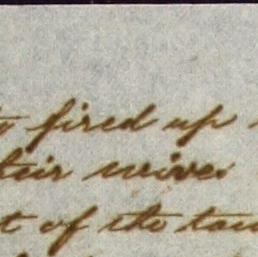 fired up
their wives
t of the tow